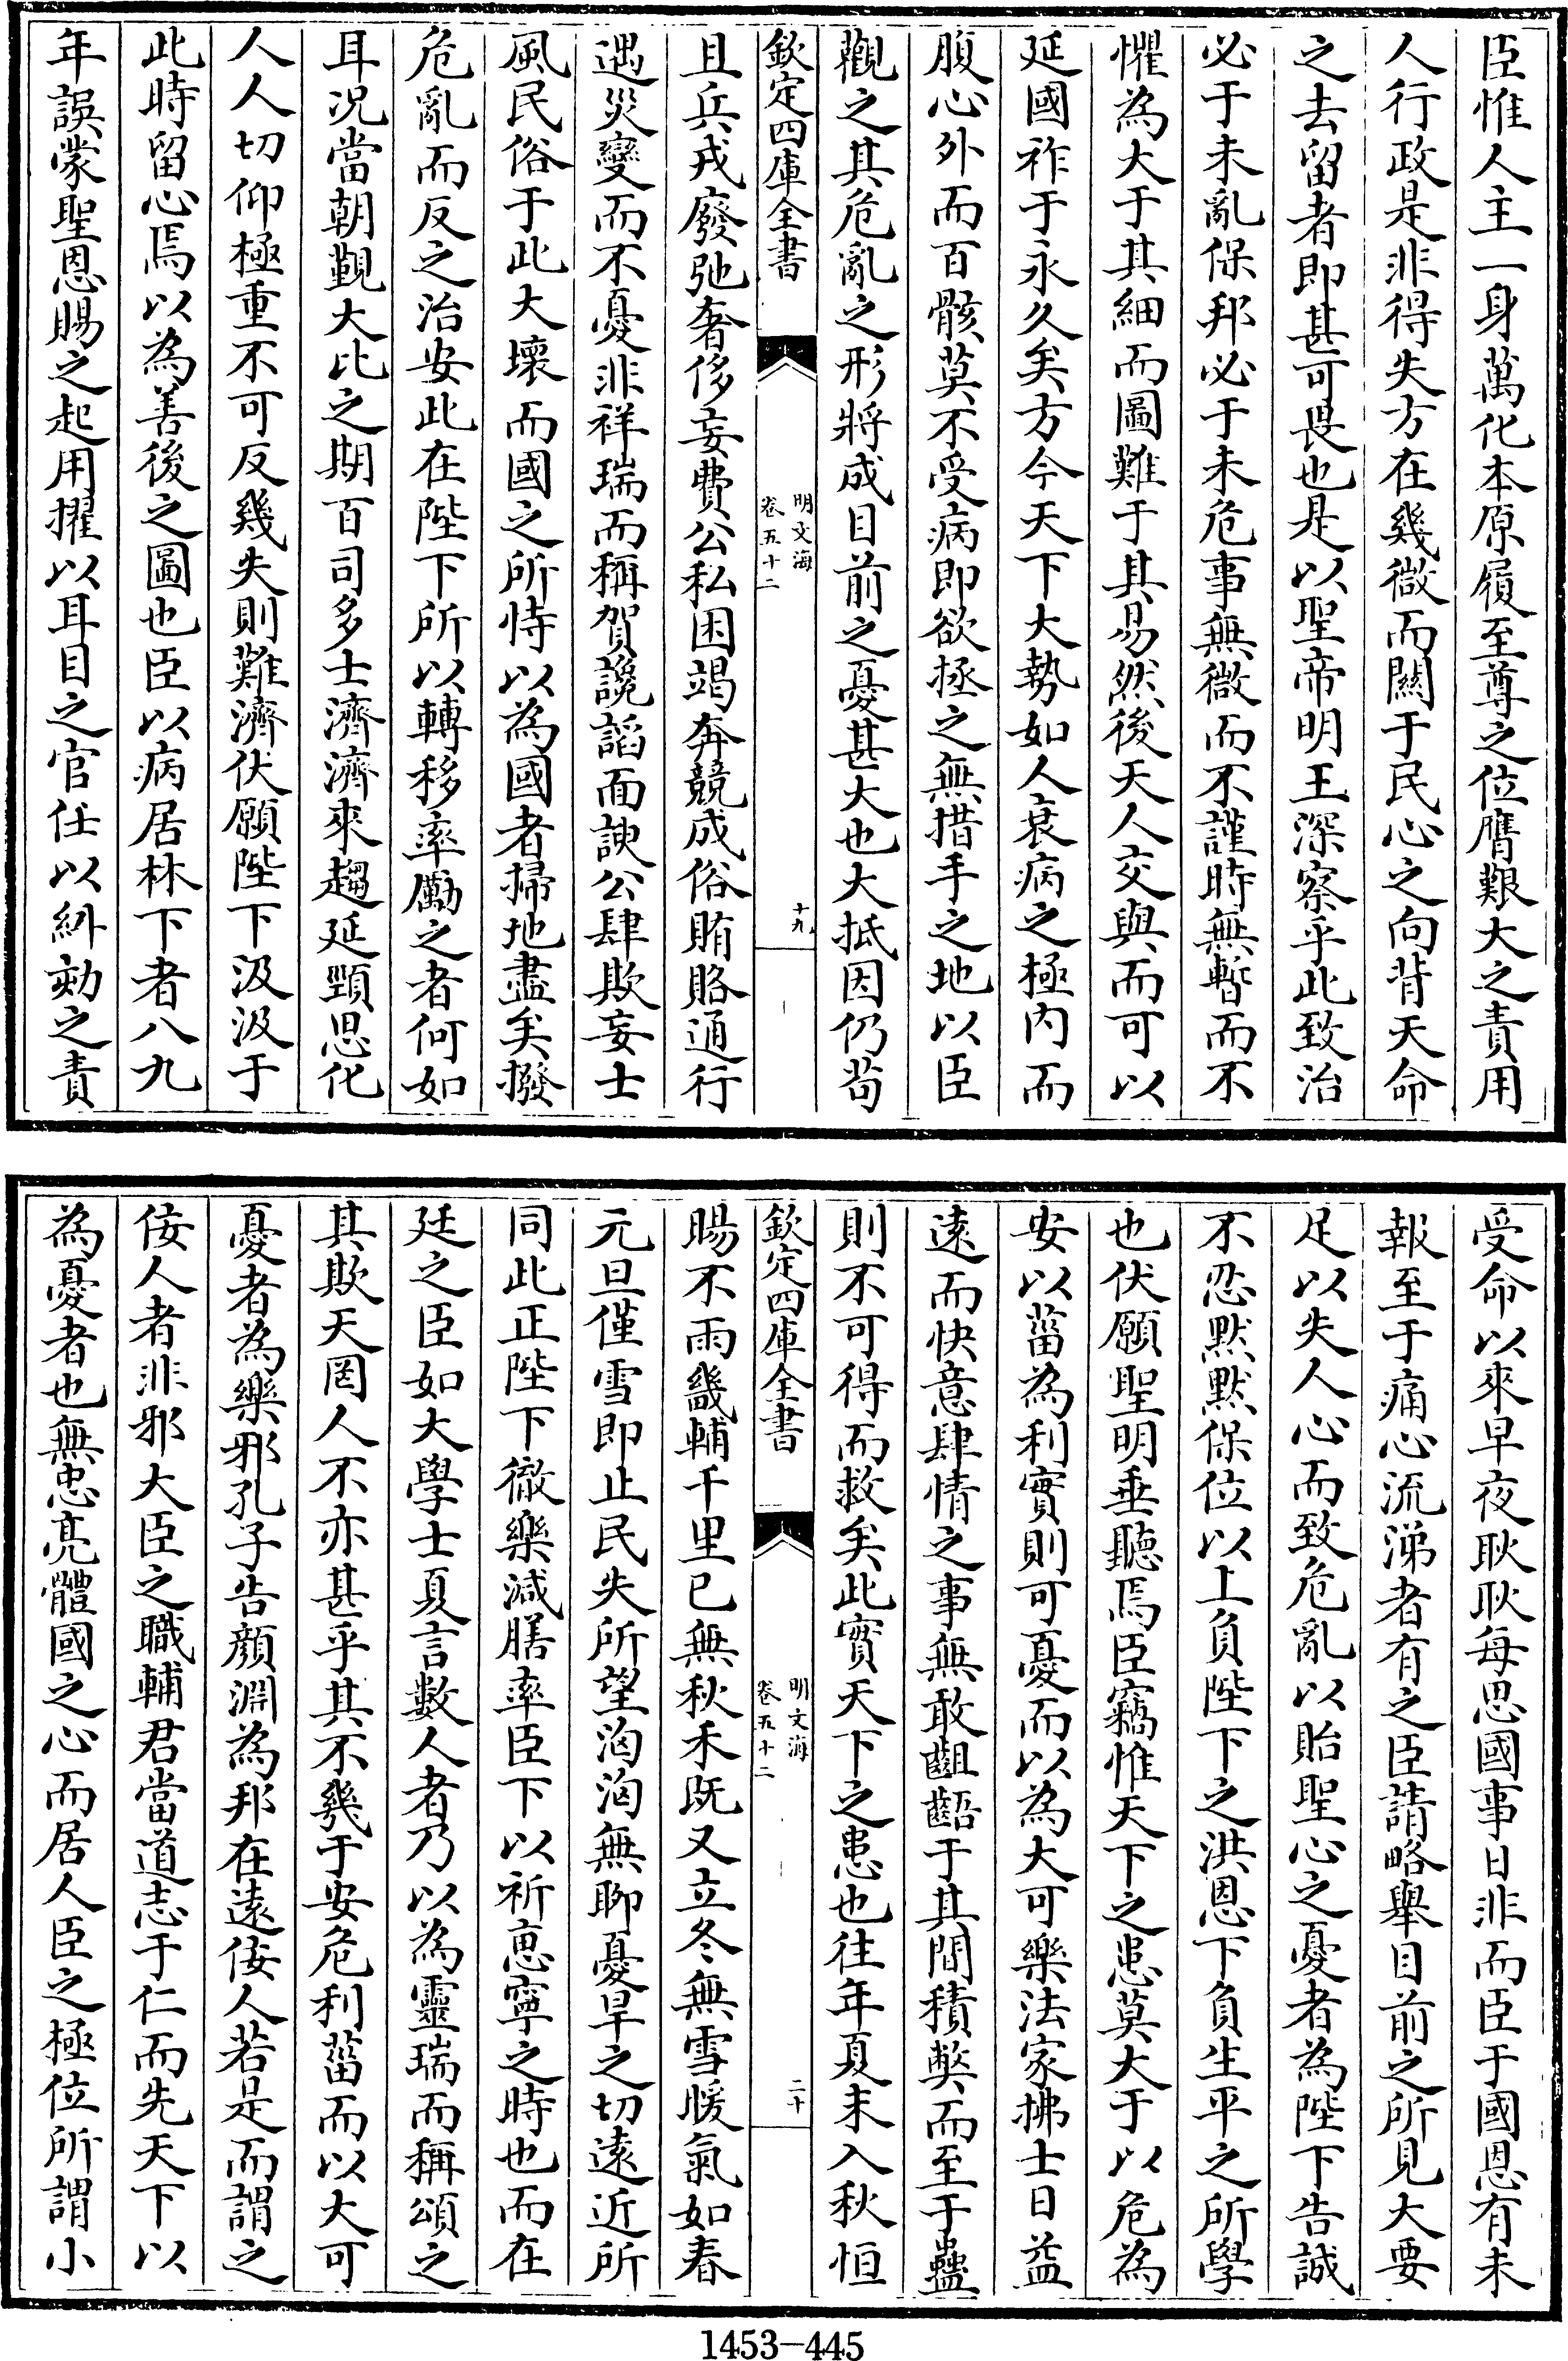 臣惟人主一身萬化本原履至尊之位膺艱大之責用
人行政是非得失方在幾微而關于民心之向背天命
之去留者即甚可畏也是以聖帝明王深察乎此致治
必于未亂保邦必于未危事無微而不謹時無暫而不
懼為大于其細而圖難于其易然後天人交與而可以
延國祚于永久矣方今天下大勢如人衰病之極内而
腹心外而百骸莫不受病即欲拯之無措手之地以臣
觀之其危亂之形將成目前之憂甚大也大抵因仍苟
欽定四庫全書
明文海
卷五十二
十九
且兵戎廢弛奢侈妄費公私困竭奔競成俗賄賂通行
遇災變而不憂非祥瑞而稱賀讒諂面諛公肆欺妄士
風民俗于此大壞而國之所恃以為國者掃地盡矣撥
危亂而反之治安此在陛下所以轉移率勵之者何如
耳况當朝覲大比之期百司多士濟濟來趨延頸思化
人人切仰極重不可反幾失則難濟伏願陛下汲汲于
此時留心焉以為善後之圖也臣以病居林下者八九
年誤蒙聖恩賜之起用擢以耳目之官任以糾劾之責
受命以來早夜耿耿每思國事日非而臣于國恩有未
報至于痛心流涕者有之臣請略舉目前之所見大要
足以失人心而致危亂以貽聖心之憂者為陛下告誠
不忍默默保位以上負陛下之洪恩下負生平之所學
也伏願聖明垂聽焉臣竊惟天下之患莫大于以危為
安以菑為利實則可憂而以為大可樂法家拂士日益
遠而快意肆情之事無敢齟齬于其間積獘而至于蠱
則不可得而救矣此實天下之患也往年夏末入秋恒
欽定四庫全書
明文海
卷五十二
二十
暘不雨畿輔千里已無秋禾既又立冬無雪暖氣如春
元旦僅雪即止民失所望洶洶無聊憂旱之切遠近所
同此正陛下徹樂減膳率臣下以祈恵寧之時也而在
廷之臣如大學士夏言數人者乃以為靈瑞而稱頌之
其欺天罔人不亦甚乎其不幾于安危利菑而以大可
憂者為樂邪孔子告顔淵為邦在遠佞人若是而謂之
佞人者非邪大臣之職輔君當道志于仁而先天下以
為憂者也無忠亮體國之心而居人臣之極位所謂小
1453-445